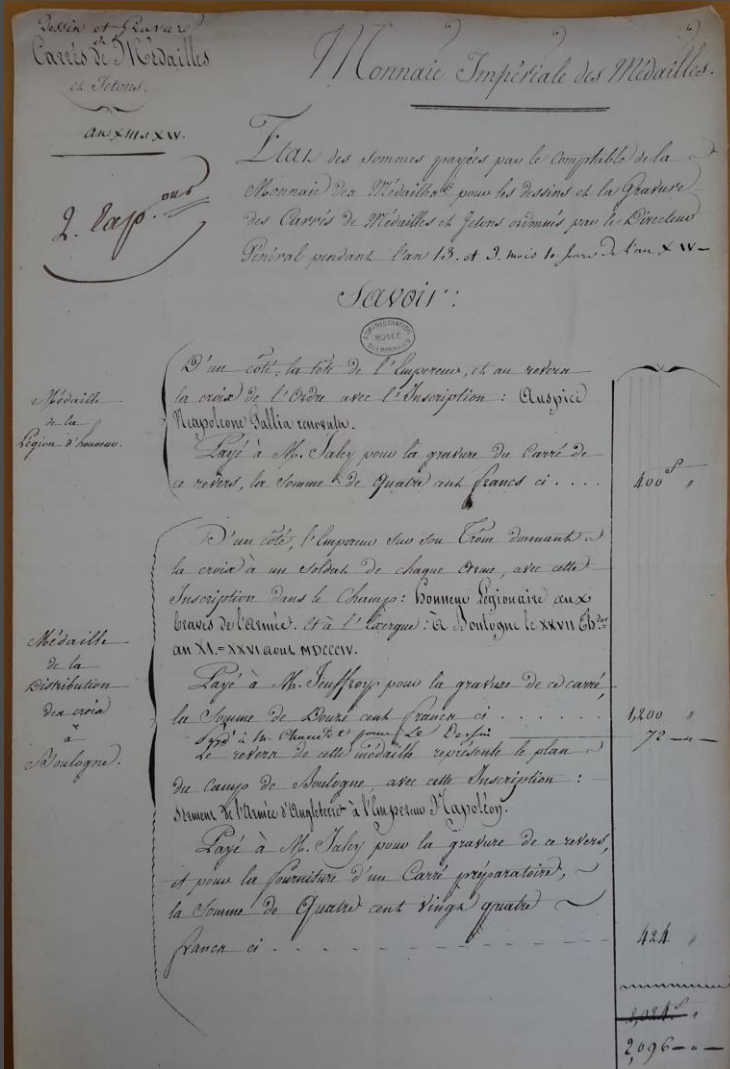 Dessin et Gravure
de
Carrés de Médailles
et Jetons.
an XIII et XIV.
2. Exp.ons
Monnaie Impériale des Médailles.
Etat des sommes payées par le Comptable de la
Monnaie des Médailles pour les dessins et la Gravure
des Carrés de Médailles et Jetons ordonnés par le Directeur
Général pendant l'an 13. et 3. mois 10 jours de l'an XIV
Savoir :
ADMINISTRATION
MUSÉE
DES MONNAIES
Médaille
de la
Légion d'honneur.
D'un côté, la tête de l'Empereur, et au revers
la croix de l'Ordre avec l'Inscription : Auspice
Neapoleone Gallia renovata.
Payé à M. Jaley pour la gravure du Carré de
ce revers, la somme de Quatre cent francs ci . . . .
400 f "
Médaille
de la
Distribution
des croix
à
Boulogne.
D'un côté, l'Empereur sur son Trône donnant
la croix à un soldat de chaque arme, avec cette
Inscription dans le Champ : honneur Légionaire aux
braves de l'armée. Et à l'Exergue : à Boulogne le XXVII Th.dor
an XI.= XXVI aout MDCCCIV.
Payé à M. Jeuffroy pour la gravure de ce carré,
la Somme de Douze cent francs ci . . . . . . .
1,200 "
Payé à M. Chaudet pour Le Dessin
72 — " —
Le revers de cette médaille représente le plan
du camp de Boulogne, avec cette Inscription :
Serment de l'Armée d'Angleterre à l'Empereur Napoléon.
Payé à M. Jaley pour la gravure de ce revers,
et pour la fourniture d'un Carré préparatoire,
la Somme de Quatre cent vingt quatre
francs ci . . . . . . .
424 "
2,024 f "
2,096 — " —